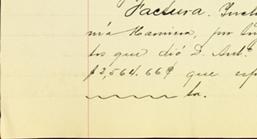 Factura. Incl
mía Ramírez, por
tos que dió D. Ant.º
$2,564.66 que esp
ta.